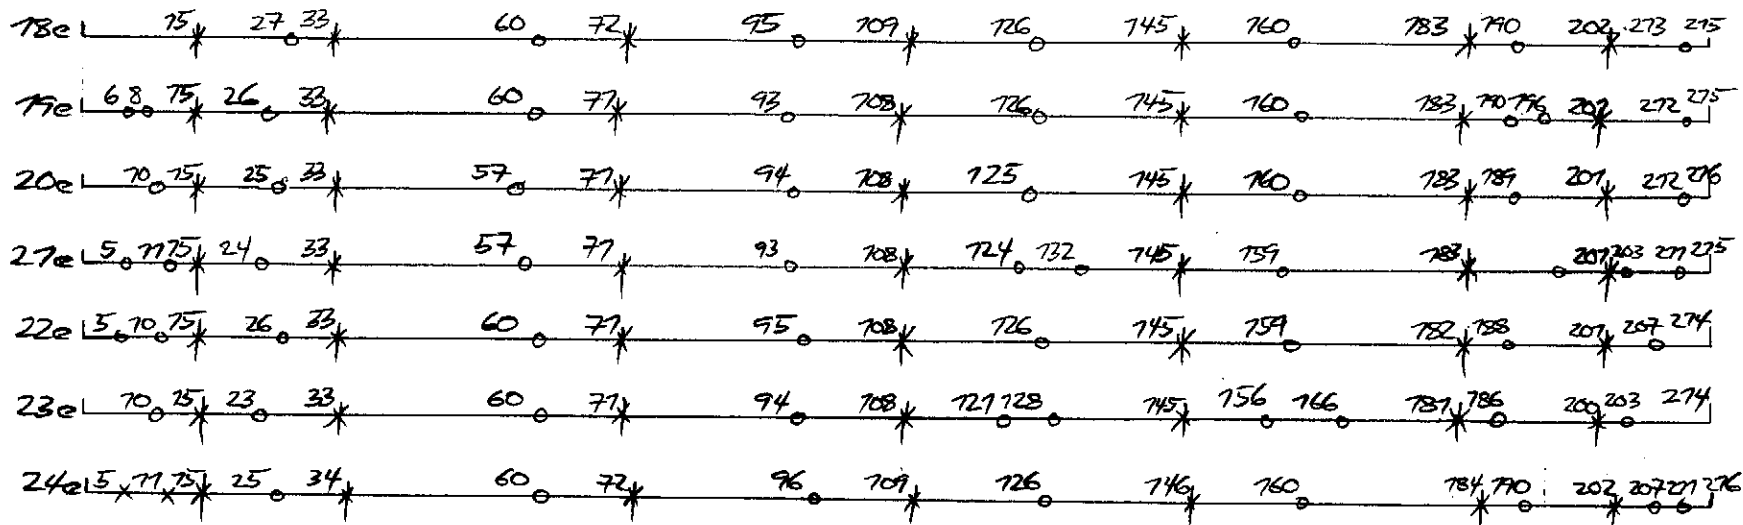 18e 15 27 33 60 72 95 109 126 145 160 183 190 202 213 215
19e 6 8 15 26 33 60 71 93 108 126 145 160 183 190 196 201 212 215
20e 10 15 25 33 57 71 94 108 125 145 160 183 189 201 212 216
21e 5 11 15 24 33 57 71 93 108 124 132 145 159 183 201 203 211 215
22e 5 10 15 26 33 60 71 95 108 126 145 159 182 188 201 207 214
23e 10 15 23 33 60 71 94 108 121 128 145 156 166 181 186 200 203 214
24e 5 11 15 25 34 60 72 96 109 126 146 160 184 190 202 207 211 216